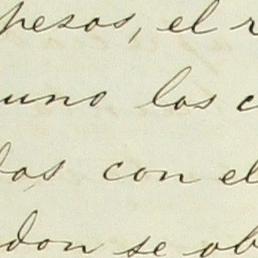 pesos, el
uno los
con el
don se ob